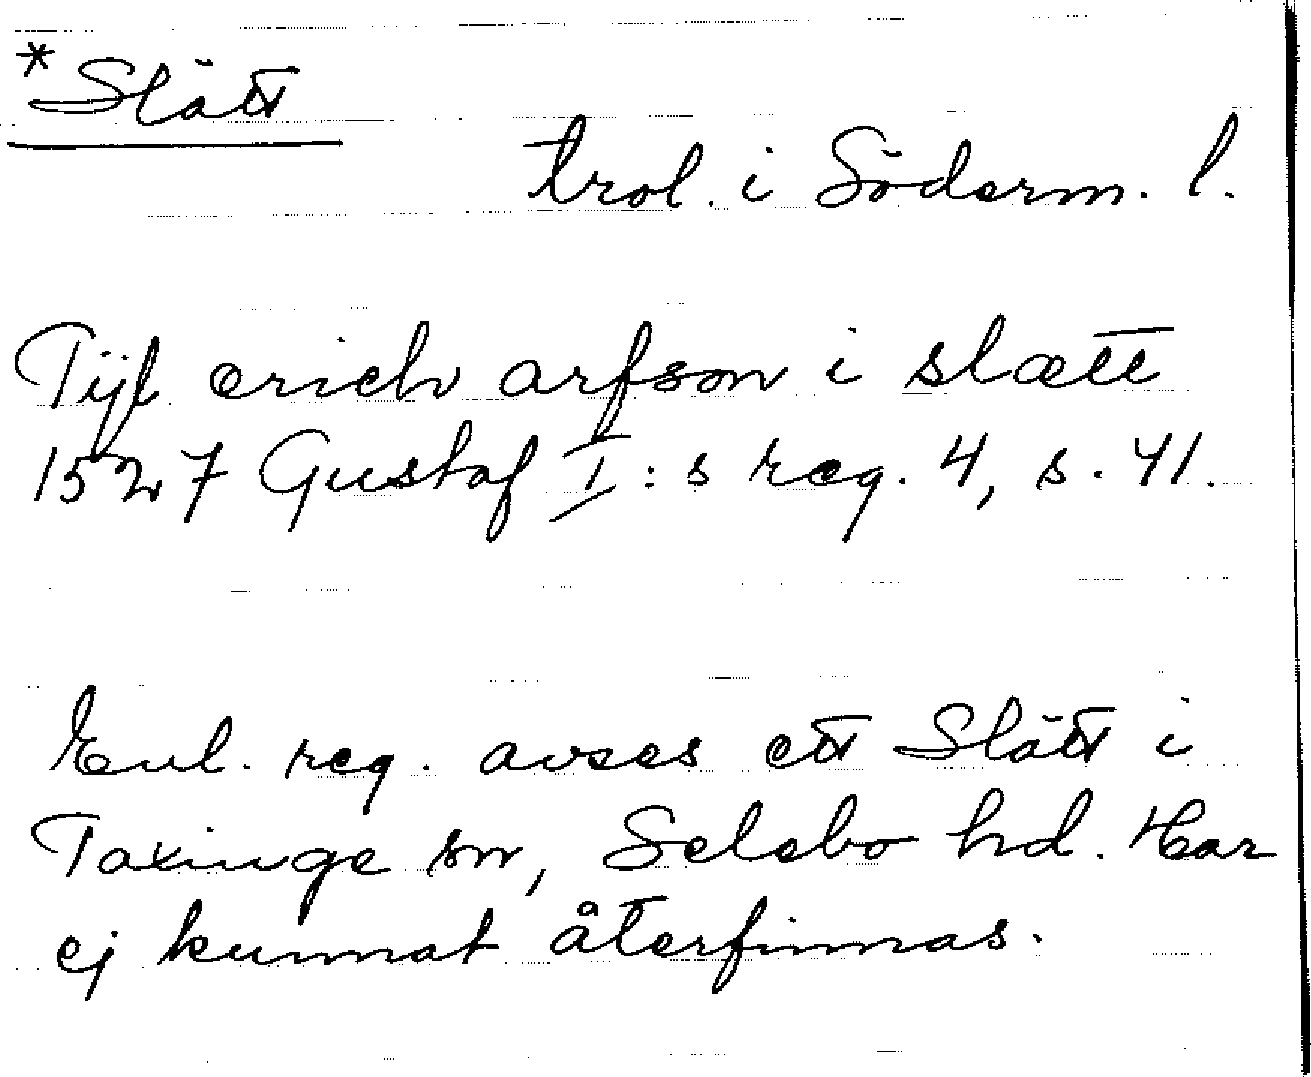 *Slätt
trol. i Söderm. l.
Tÿl erich arfson i slætt
1527 Gustaf I:s reg. 4, s. 41.
Enl. reg. avses ett Slätt i
Taxinge sn, Selebo hd. Har
ej kunnat återfinnas.